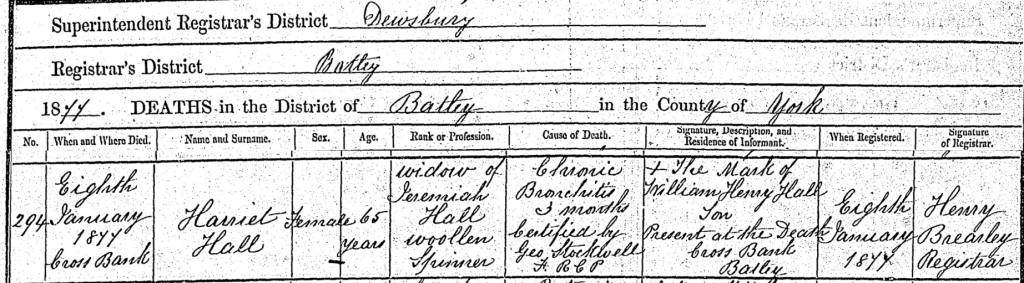 Superintendent Registrar's District Dewsbury
Registrar's District Batley
1877. DEATHS in the District of Batley in the County of York
No. When and Where Died. Name and Surname. Sex. Age. Rank or Profession. Cause of Death. Signature, Description, and Residence of Informant. When Registered. Signature of Registrar.
294
Eighth
January
1877
Cross Bank
Harriet
Hall
Female
65
years
widow of
Jeremiah
Hall
woollen
Spinner
Chronic
Bronchitis
3 months
Certified by
Geo Stockwell
F R C P
+ The Mark of
William Henry Hall
Son
Present at the Death
Cross Bank
Batley
Eighth
January
1877
Henry
Brearley
Registrar